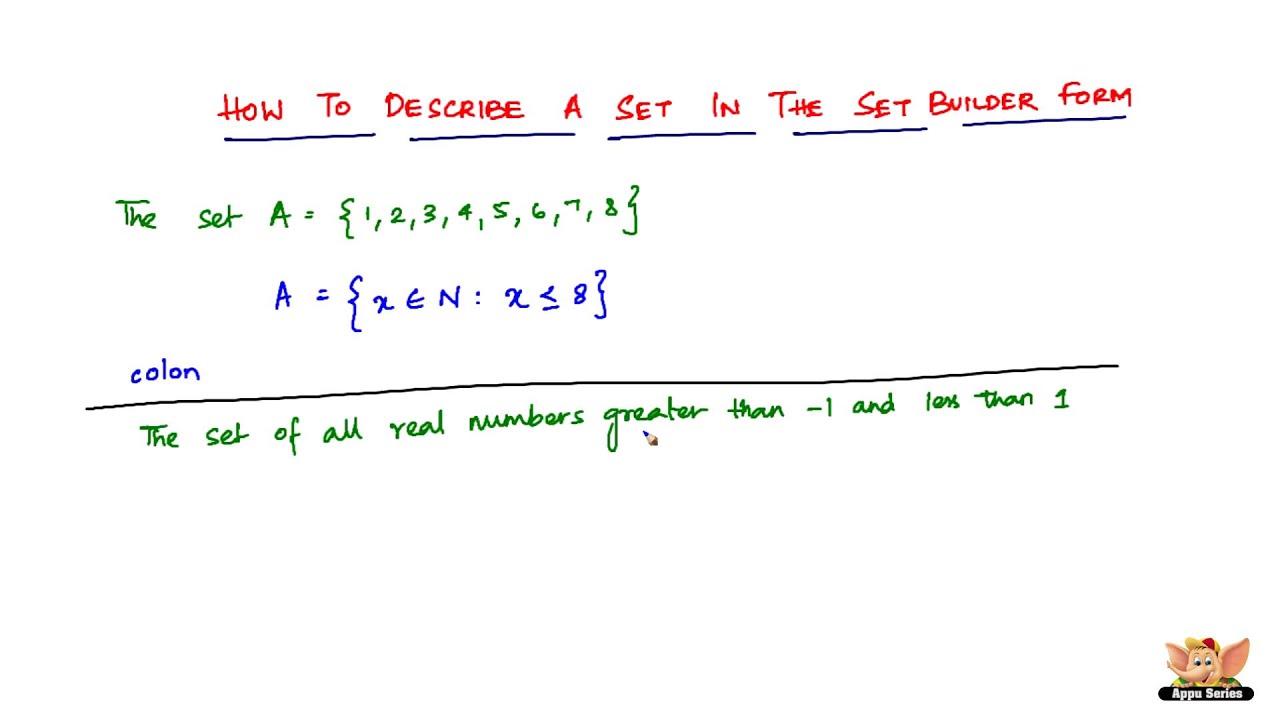 HOW TO DESCRIBE A SET IN THE SET BUILDER FORM
The set A = {1, 2, 3, 4, 5, 6, 7, 8}
A = {x ∈ N : x ≤ 8}
colon
The set of all real numbers greater than -1 and less than 1
Appu Series